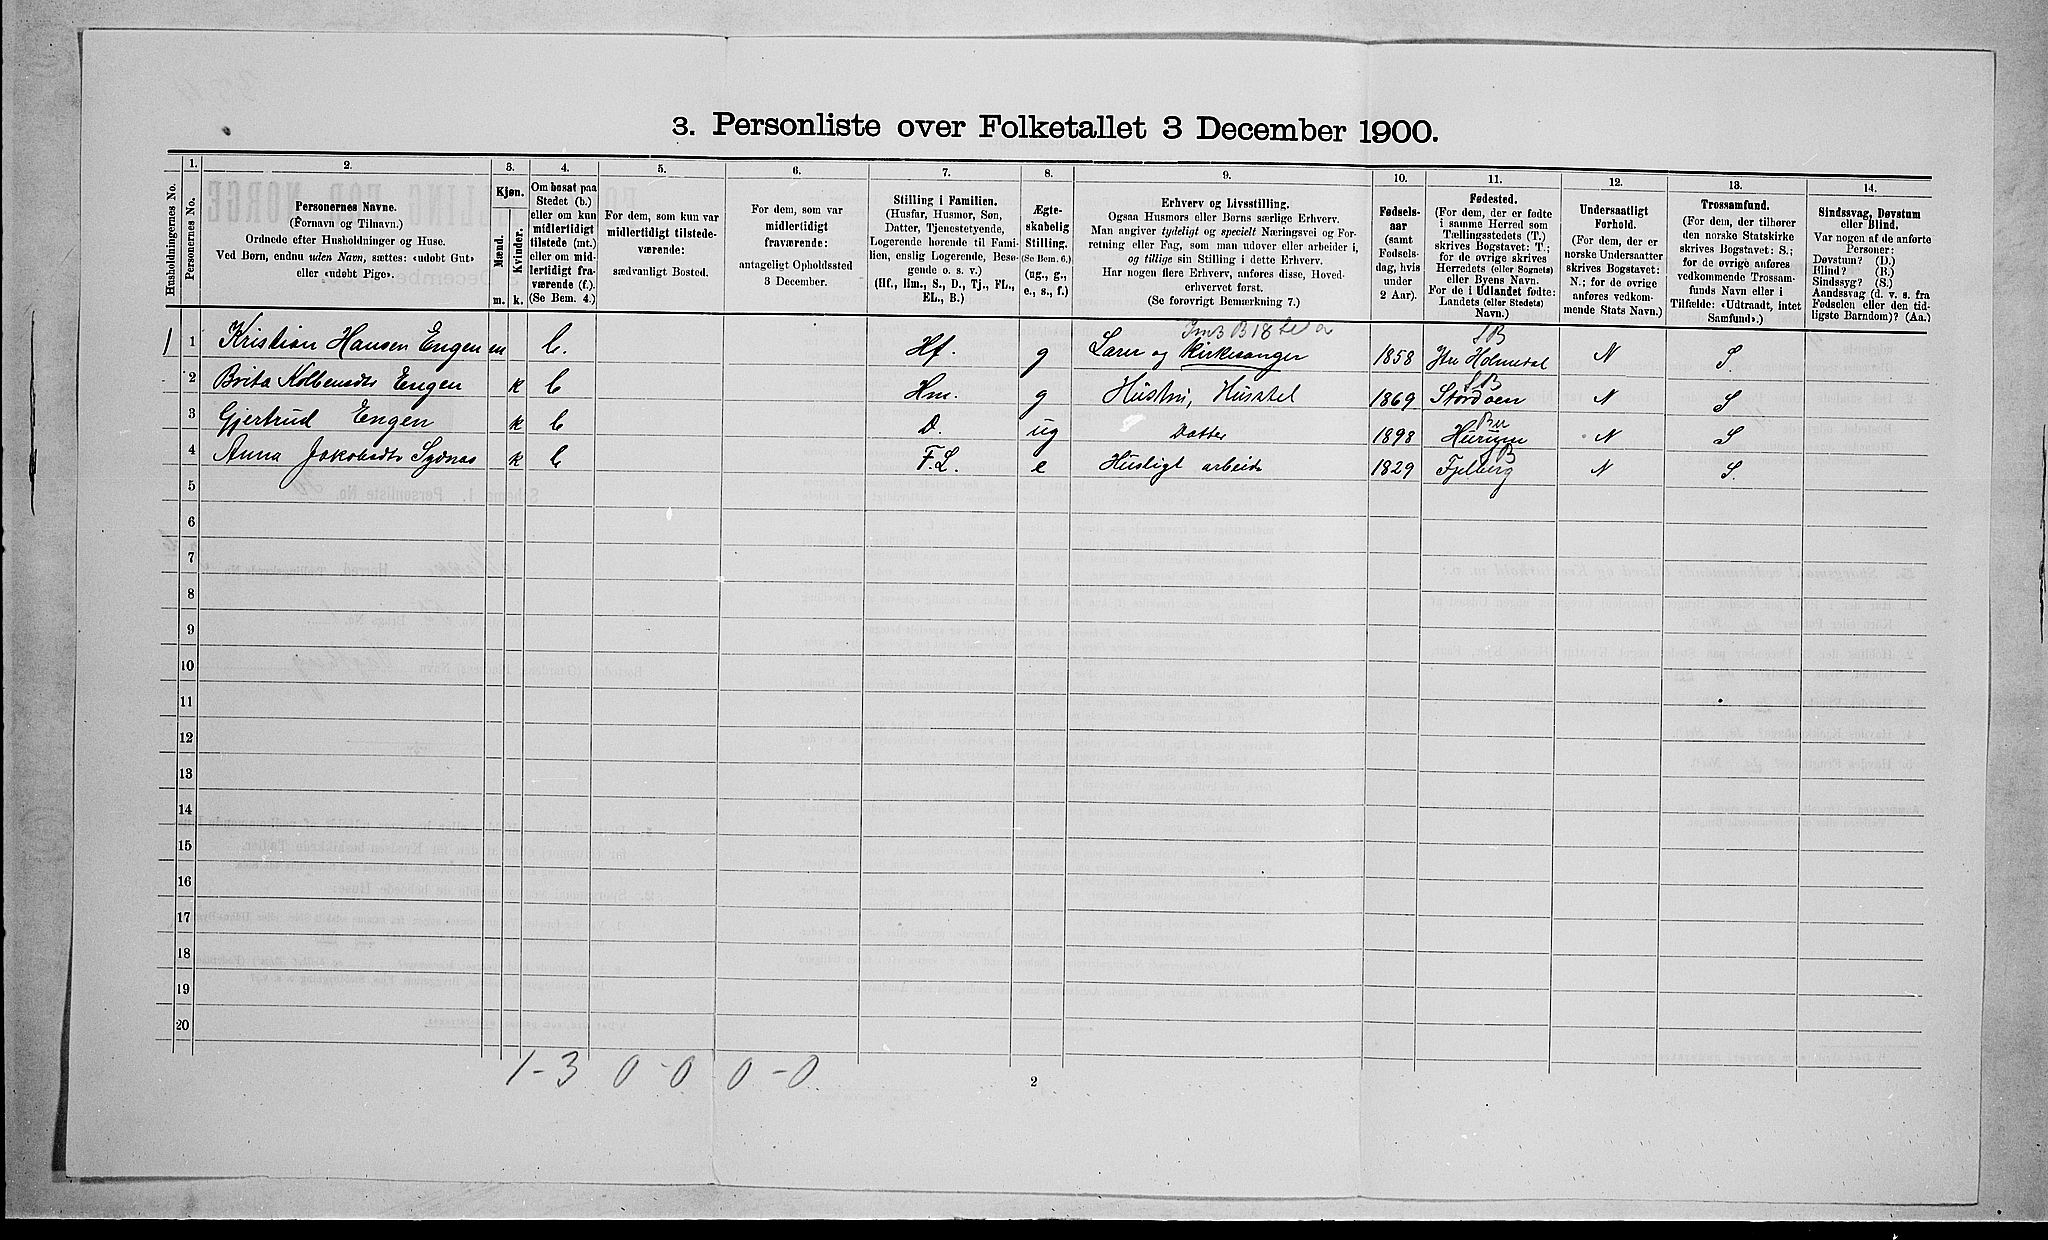 3. Personliste over Folketallet 3 December 1900.
Husholdningernes No.
1.
Personernes No.
2.
Personernes Navne.
(Fornavn og Tilnavn.)
Ordnede efter Husholdninger og Huse.
Ved Børn, endnu uden Navn, sættes: «udøbt Gut»
eller «udøbt Pige».
3.
Kjøn.
Mænd.
Kvinder.
m.
k.
4.
Om bosat paa
Stedet (b.)
eller om kun
midlertidigt
tilstede (mt.)
eller om mid-
lertidigt fra-
værende (f.).
(Se Bem. 4.)
5.
For dem, som kun var
midlertidigt tilstede-
værende:
sædvanligt Bosted.
6.
For dem, som var
midlertidigt
fraværende:
antageligt Opholdssted
3 December.
7.
Stilling i Familien.
(Husfar, Husmor, Søn,
Datter, Tjenestetyende,
Logerende hørende til Fami-
lien, enslig Logerende, Besø-
gende o. s. v.)
(Hf., Hm., S., D., Tj., FL.,
EL., B.)
8.
Ægte-
skabelig
Stilling.
(Se Bem. 6.)
(ug., g.,
e., s., f.)
9.
Erhverv og Livsstilling.
Ogsaa Husmors eller Børns særlige Erhverv.
Man angiver tydeligt og specielt Næringsvei og For-
retning eller Fag, som man udover eller arbeider i,
og tillige sin Stilling i dette Erhverv.
Har nogen flere Erhverv, anføres disse, Hoved-
erhvervet først.
(Se forøvrigt Bemærkning 7.)
10.
Fødsels-
aar
(samt
Fødsels-
dag, hvis
under
2 Aar).
11.
Fødested.
(For dem, der er fødte
i samme Herred som
Tællingsstedets (T.)
skrives Bogstavet: T.;
for de øvrige skrives
Herredets (eller Sognets)
eller Byens Navn.
For de i Udlandet fødte:
Landets (eller Stedets)
Navn.)
12.
Undersaatligt
Forhold.
(For dem, der er
norske Undersaatter
skrives Bogstavet:
N.; for de øvrige
anføres vedkom-
mende Stats Navn.)
13.
Trossamfund.
(For dem, der tilhører
den norske Statskirke
skrives Bogstavet: S.;
for de øvrige anføres
vedkommende Trossam-
funds Navn eller i
Tilfælde: «Udtraadt, intet
Samfund».)
14.
Sindssvag, Døvstum
eller Blind.
Var nogen af de anførte
Personer:
Døvstum? (D.)
Blind? (B.)
Sindssyg? (S.)
Aandssvag (d. v. s. fra
Fødselen eller den tid-
ligste Barndom)? (Aa.)
SB
1 1 Kristian Hansen Engen m b. Hf. g Lærer og Kirkesanger 1858 Ytre Holmedal N S.
SB
2 Brita Kolbensdtr Engen k b Hm. g Hustru, Husstel 1869 Stordøen N S
Bu
3 Gjertrud Engen k b D. ug Datter 1898 Hurum N S
SB
4 Anna Jakobsdtr Sydnæs k b F.L. e Husligt arbeide 1829 Fjelberg N S.
5
6
7
8
9
10
11
12
13
14
15
16
17
18
19
20
1-3 0-0 0-0.
2